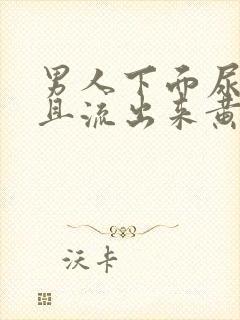 男人下面尿
且流出来黄
沃卡